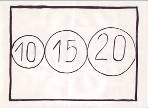 10 15 20